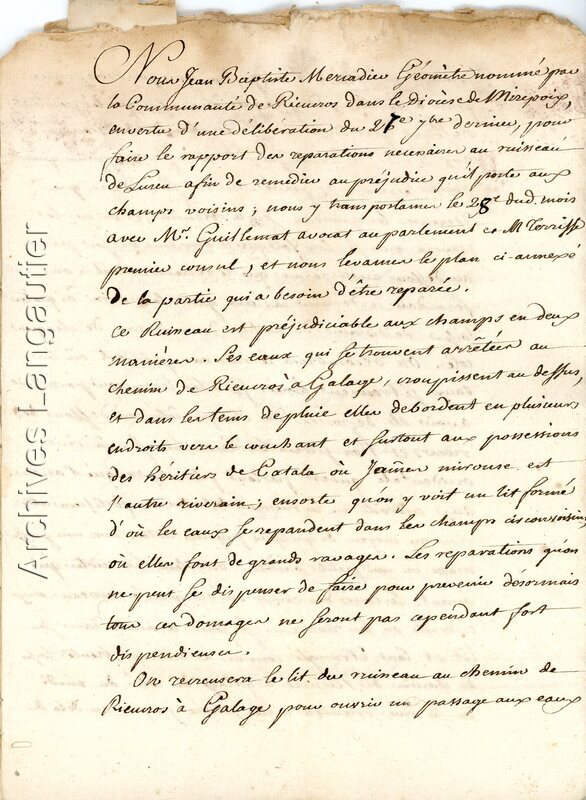 Nous Jean Baptiste Mercadier Géomètre nommé par
la Communauté de Rieucros dans le diocèse de Mirepoix,
en vertu d'une délibération du 27e 7bre dernier, pour
faire le rapport des reparations necessaires au ruisseau
de afin de remedier au préjudice qu'il porte aux
champs voisins; nous y transportames le 28e dud. mois
avec Mr. Guillemat avocat au parlement et M Torrisse
premier consul, et nous levames le plan ci-annexé
de la partie qui a besoin d'être reparée.
Ce Ruisseau est préjudiciable aux champs en deux
manières. Ses eaux qui se trouvent arrêtées au
chemin de Rieucros à Galage, croupissent au dessus,
et dans les tems de pluie elles debordent en plusieurs
endroits vers le couchant et surtout aux possessions
des héritiers de Catala où James mirouse est
l'autre riverain; ensorte qu'on y voit un lit formé
d'où les eaux se repandent dans les champs circonvoisins,
où elles font de grands ravages. Les reparations qu'on
ne peut se dispenser de faire pour prevenir désormais
tous ces domages ne seront pas cependant fort
dispendieuses.
On recreusera le lit du ruisseau au chemin de
Rieucros à Galage pour ouvrir un passage aux eaux
Archives Langautier